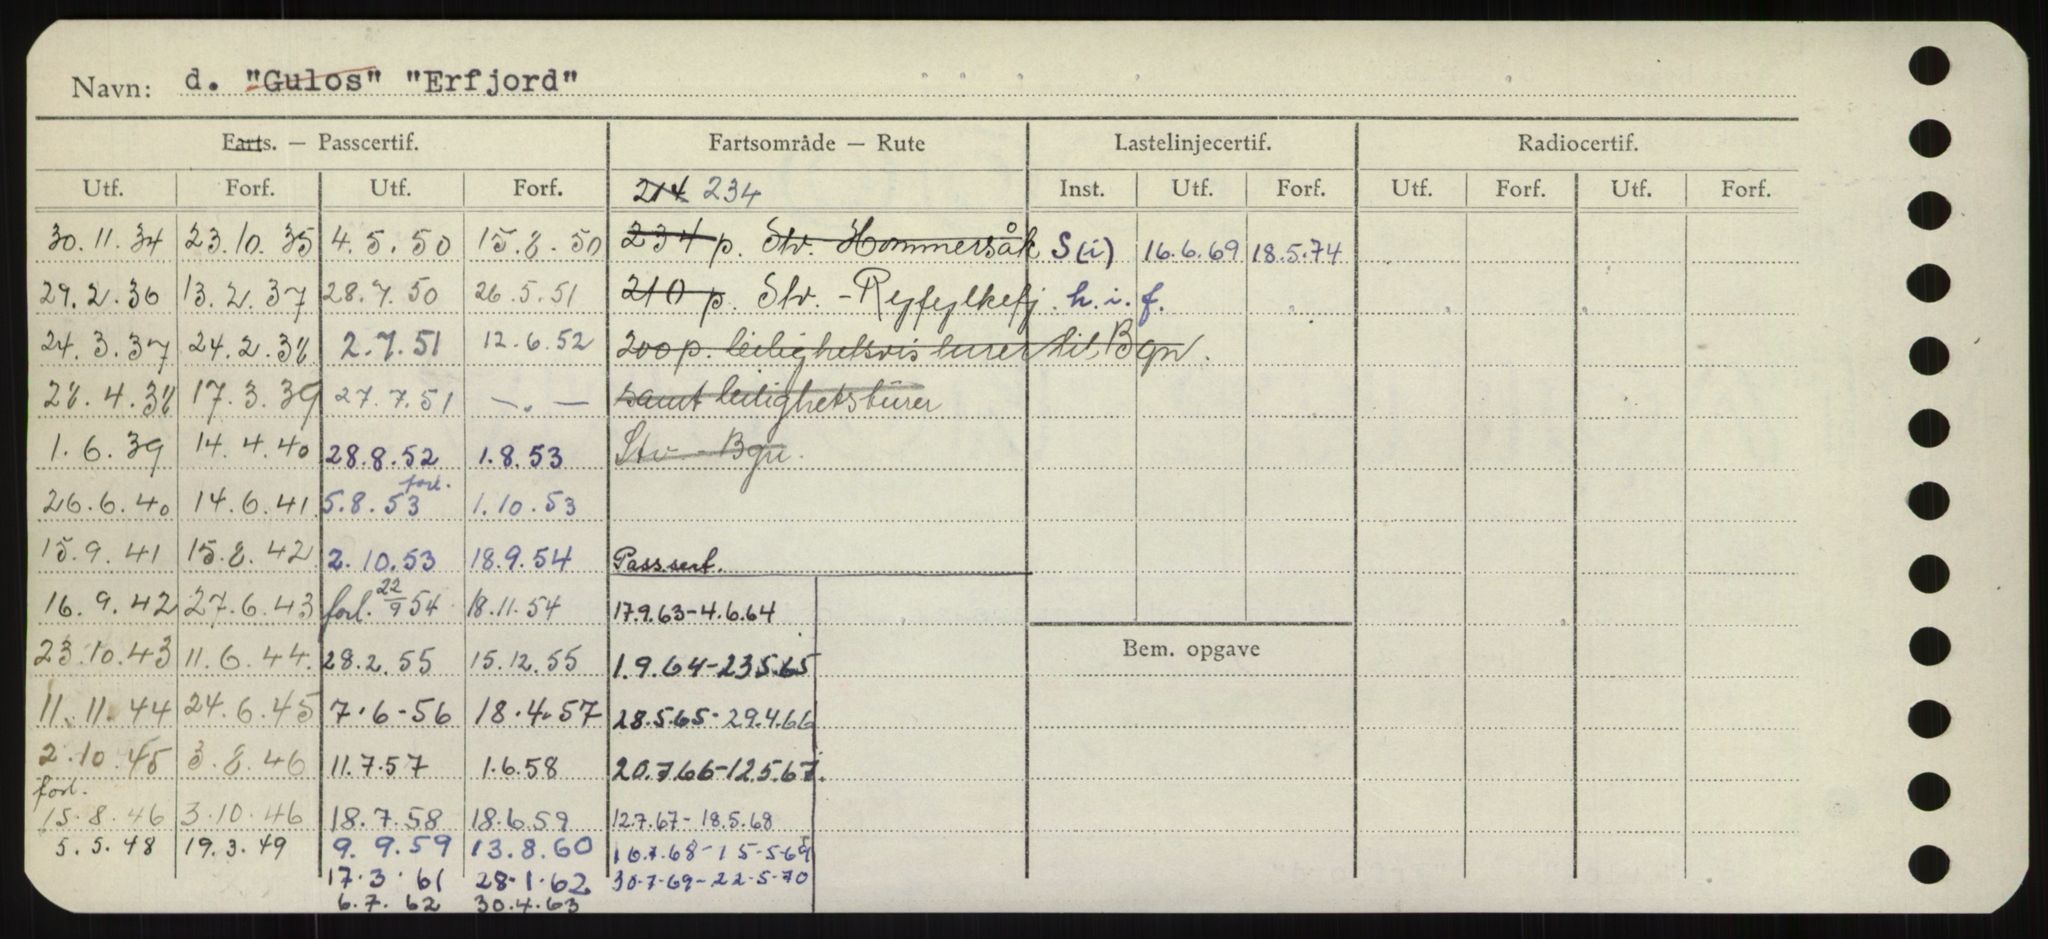 Navn: d. "Gulos" "Erfjord"
Farts. — Passcertif. Fartsområde — Rute Lastelinjecertif. Radiocertif.
Utf. Forf. Utf. Forf. 214 234 Inst. Utf. Forf. Utf. Forf. Utf. Forf.
30.11.34 23.10.35 4.5.50 15.8.50 234 p. Stv. Hommersåk S(i) 16.6.69 18.5.74
29.2.36 13.2.37 28.7.50 26.5.51 210 p. Stv. - Ryfylkefj. h.i.f.
24.3.37 24.2.38 2.7.51 12.6.52 200 p. leilighetsvis turer til Bgn.
28.4.38 17.3.39 27.7.51 —.— samt leilighetsturer
1.6.39 14.4.40 28.8.52 1.8.53 Stv - Bgn.
26.6.40 14.6.41 forl. 5.8.53 1.10.53
15.9.41 15.8.42 2.10.53 18.9.54 Passsert.
16.9.42 27.6.43 forl. 22/9 54 18.11.54 17.9.63-4.6.64
23.10.43 11.6.44. 28.2.55 15.12.55 1.9.64-23.5.65 Bem. opgave
11.11.44 24.6.45 7.6-56 18.4.57 28.5.65-29.4.66
2.10.45 3.8.46 11.7.57 1.6.58 20.7.66-12.5.67.
forl.
15.8.46 3.10.46 18.7.58 18.6.59 12.7.67-18.5.68
5.5.48 19.3.49 9.9.59 13.8.60 16.7.68-15-5-69
17.3.61 28.1.62 30-7-69-22-5-70
6.7.62 30.4.63